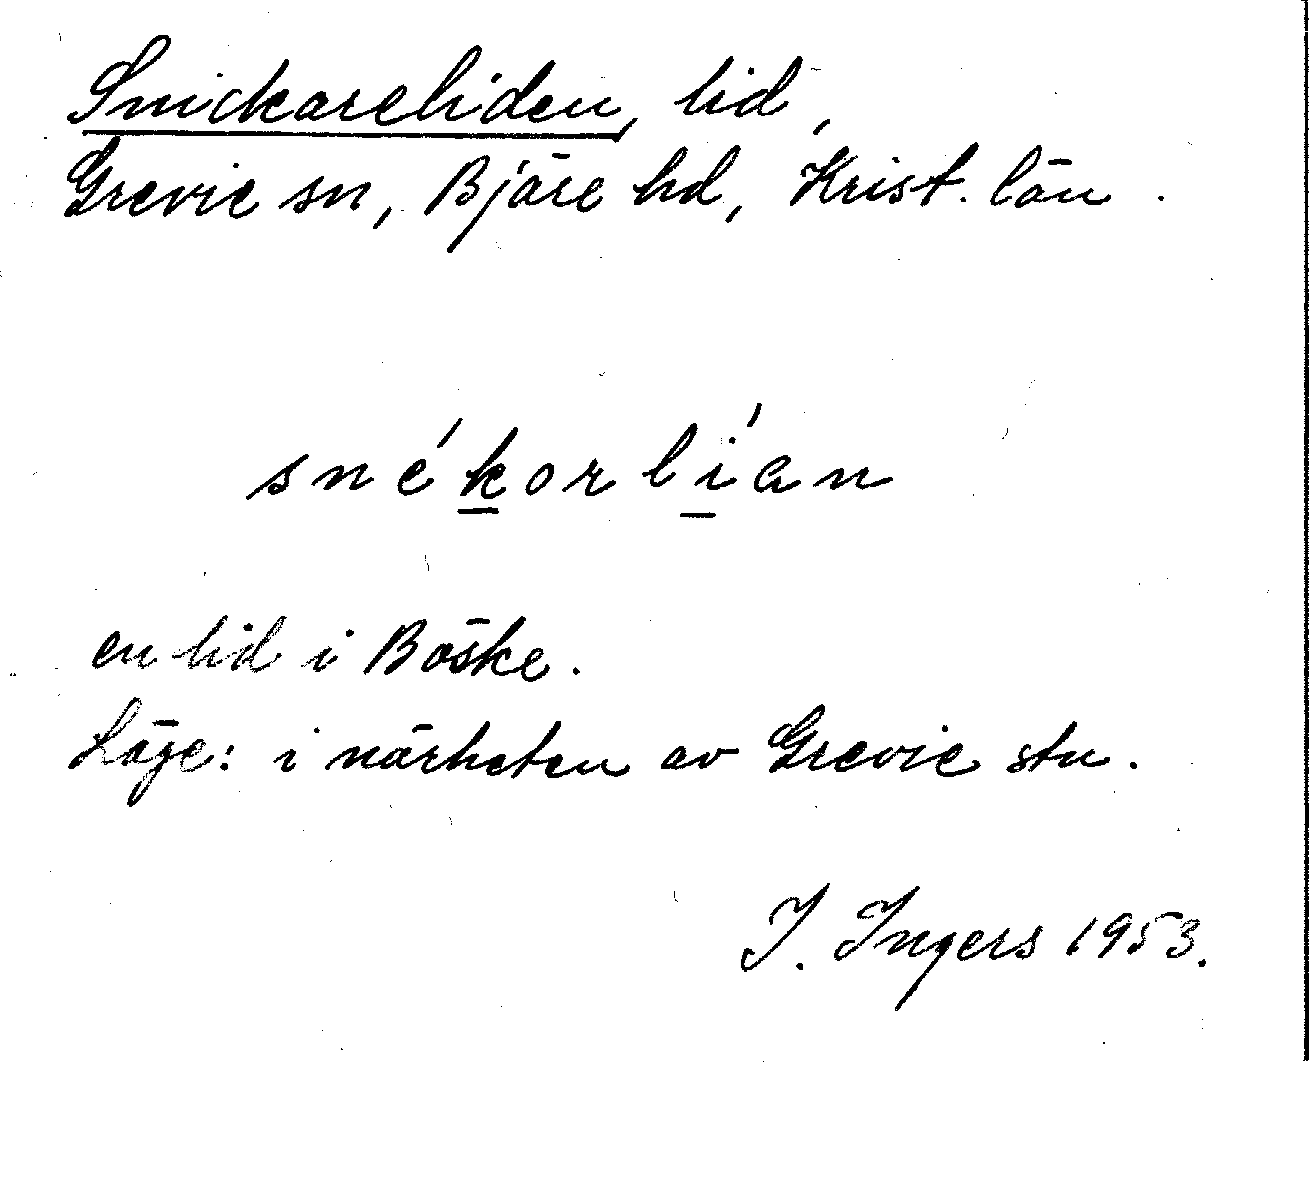 Snickareliden, lid,
Grevie sn, Bjäre hd, Krist. län.
snékorlían
en lid i Böske.
Läge: i närheten av Grevie stn.
I. Ingers 1953.